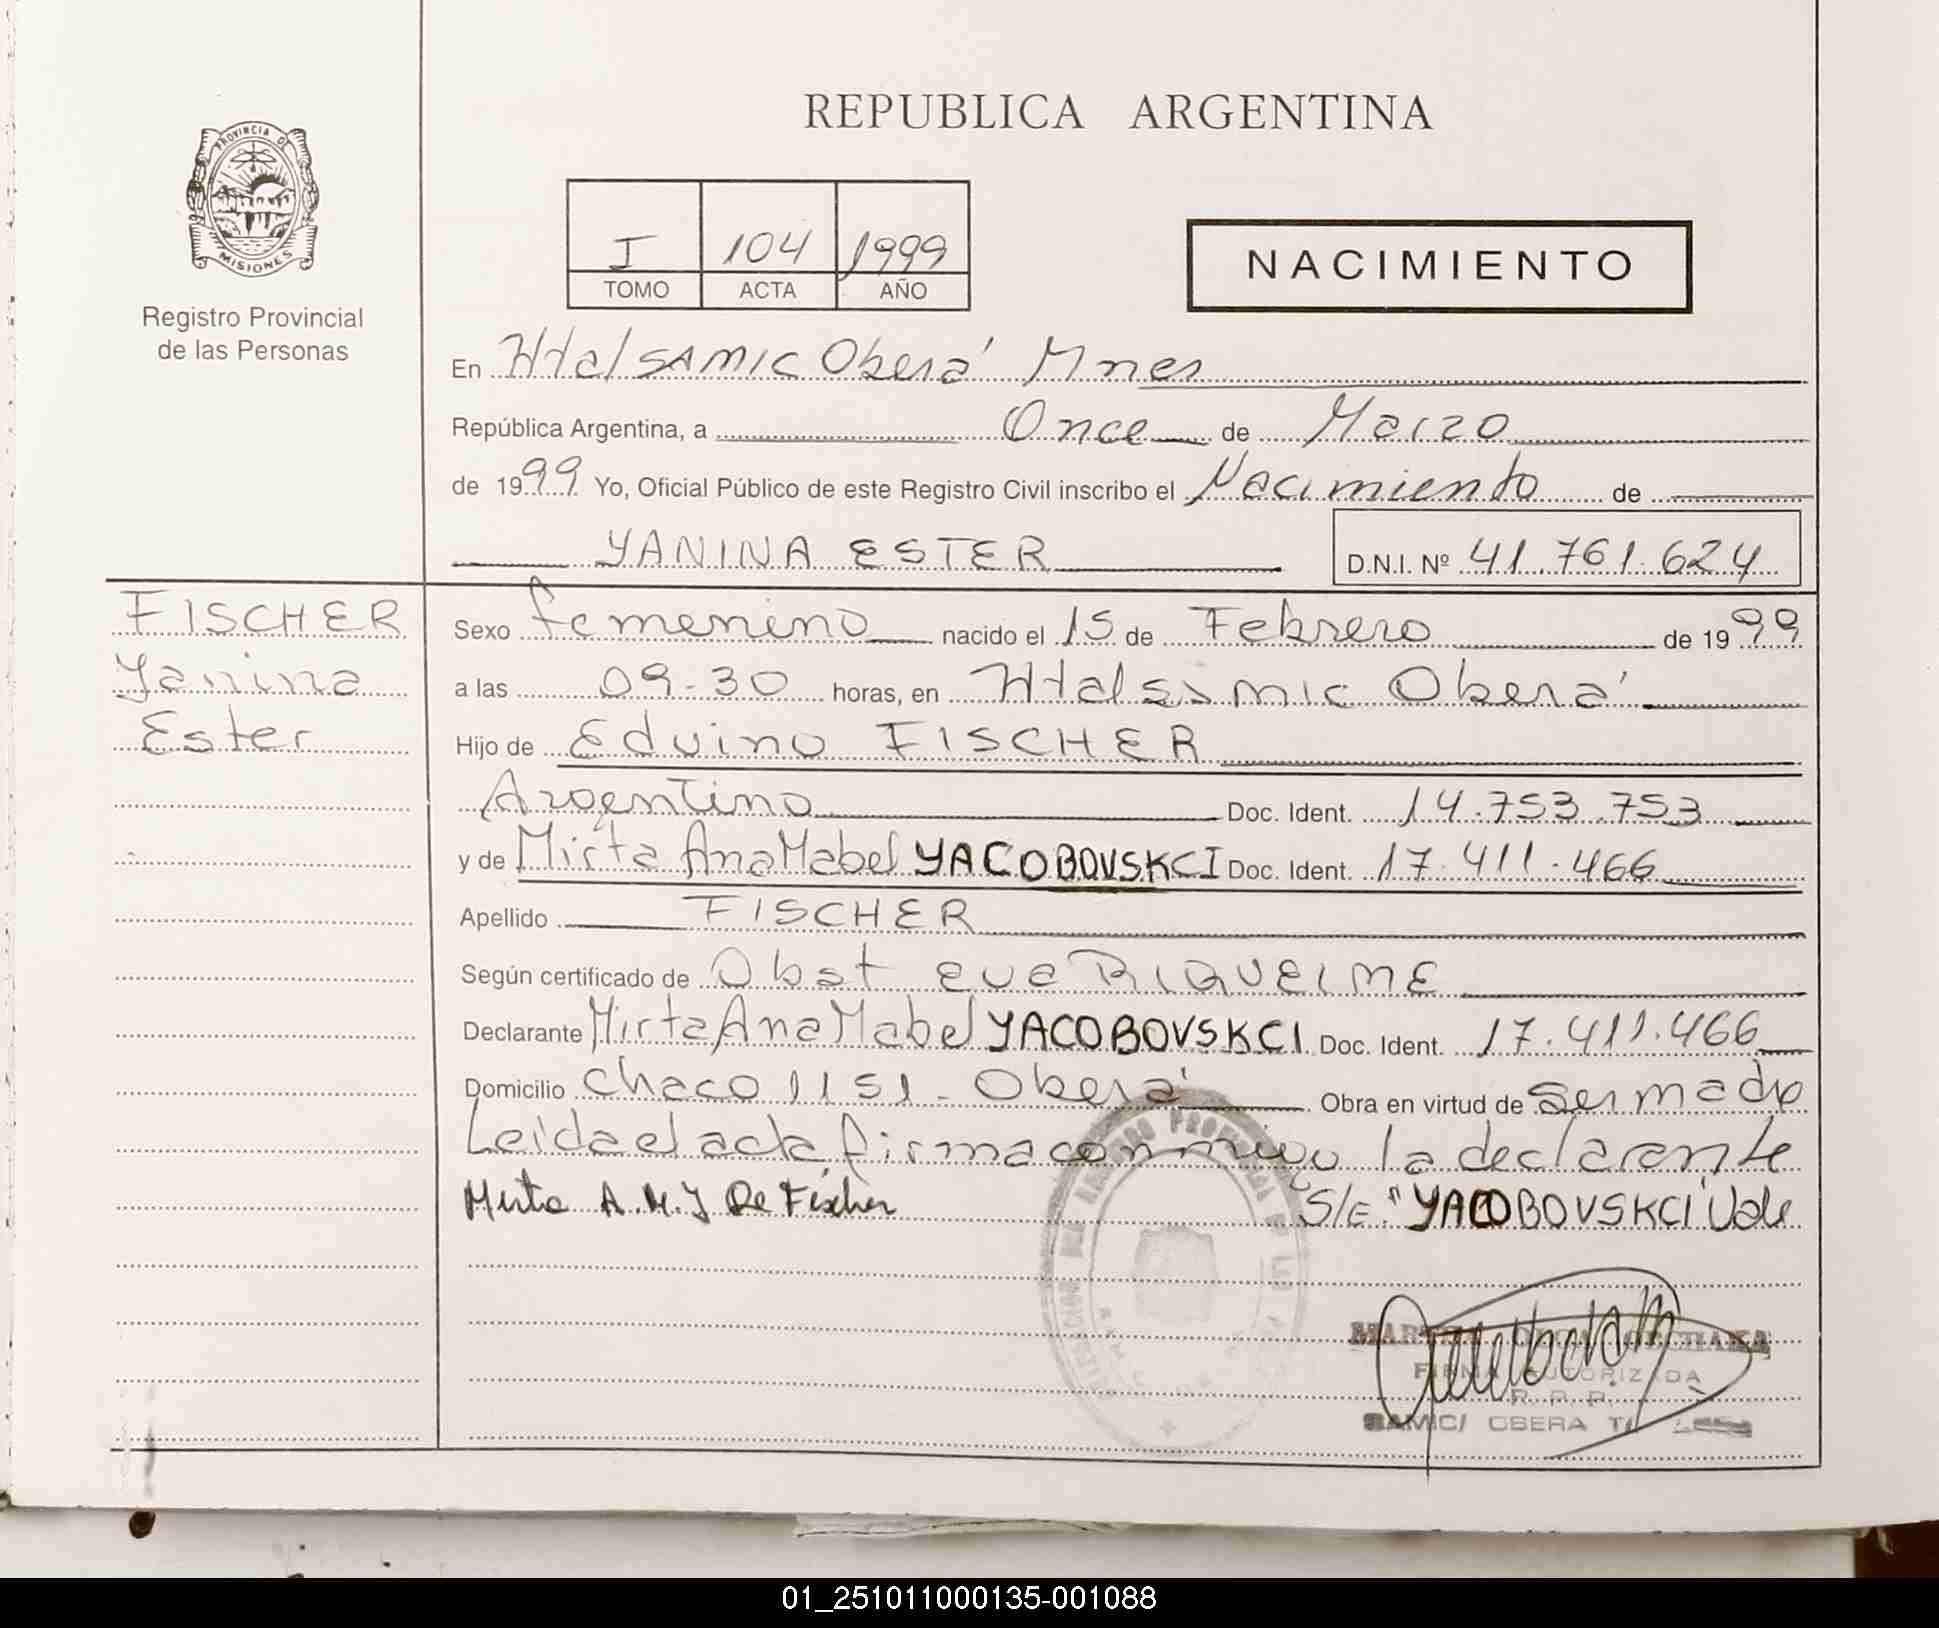 REPUBLICA ARGENTINA
PROVINCIA DE
MISIONES
Registro Provincial
de las Personas
I 104 1999
TOMO ACTA AÑO
NACIMIENTO
En Htal SAMIC Oberá Mnes
República Argentina, a Once de Marzo
de 1999 Yo, Oficial Público de este Registro Civil inscribo el Nacimiento de
YANINA ESTER D.N.I. Nº 41.761.624
FISCHER
Yanina
Ester
Sexo femenino nacido el 15 de Febrero de 1999
a las 09-30 horas, en Htal samic Oberá
Hijo de Eduino FISCHER
Argentino Doc. Ident. 14.753.753
y de Mirta Ana Mabel YACOBOVSKCI Doc. Ident. 17.411.466
Apellido FISCHER
Según certificado de Obst eva RIQUELME
Declarante Mirta Ana Mabel YACOBOVSKCI Doc. Ident. 17.411.466
Domicilio Chaco 1151 - Oberá Obra en virtud de Ser madre
Leida el acta firma conmigo la declarante
Mirta A. M. Y De Fischer S/E "YACOBOVSKCI" Vale
FIRMA AUTORIZADA
R. P. P.
SAMIC/ OBERA
01_251011000135-001088